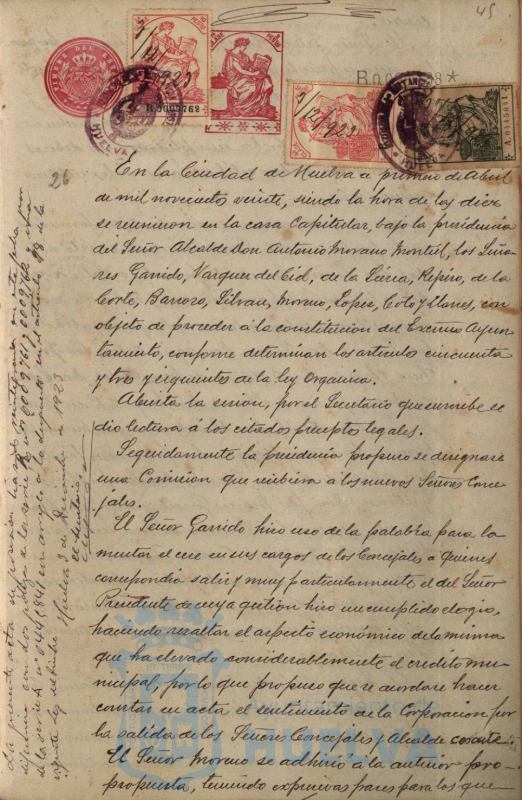 45
3/12/923
R.0003762
3/12/923
A.0445841
HUELVA
26
En la Ciudad de Huelva a primero de Abril
de mil novecientos veinte, siendo la hora de las diez
se reunieron en la casa Capitular, bajo la presidencia
del Señor Alcalde Don Antonio Morano Montiel, los Seño-
res Garrido, Vazquez del Cid, de la Sierra, Repiso, de la
Corte, Barroso, Silvan, Moreno, Lopez, Coto y Llanes, con
objeto de proceder á la constitucion del Excmo Ayun-
tamiento, conforme determinan los articulos cincuenta
y tres y siguientes de la ley Organica.
Abierta la sesion, por el Secretario que suscribe se
dio lectura á los citados preceptos legales.
Seguidamente la presidencia propuso se designase
una Comision que recibiera a los nuevos Señores Conce-
jales.
El Señor Garrido hizo uso de la palabra para la-
mentar el cese en sus cargos de los Concejales a quienes
correspondia salir y muy particularmente el del Señor
Presidente de cuya gestion hizo un cumplido elogio,
haciendo resaltar el aspecto económico de la misma
que ha elevado considerablemente el credito mu-
nicipal, por lo que propuso que se acordase hacer
constar en acta el sentimiento de la Corporacion por
la salida de los Señores Concejales y Alcalde cesante.
El Señor Moreno se adhirió á la anterior pro-
propuesta, teniendo expresivas frases para los que
La presente acta
se
ha sido reintegrada en este pliego
con dos
de la serie R. nos 0003761, 0003762
de la serie A nº 0445,841 con arreglo a lo dispuesto en el articulo 98 de la
vigente ley
Huelva 3 de Diciembre de 1923
El Secretario,
HUELVA